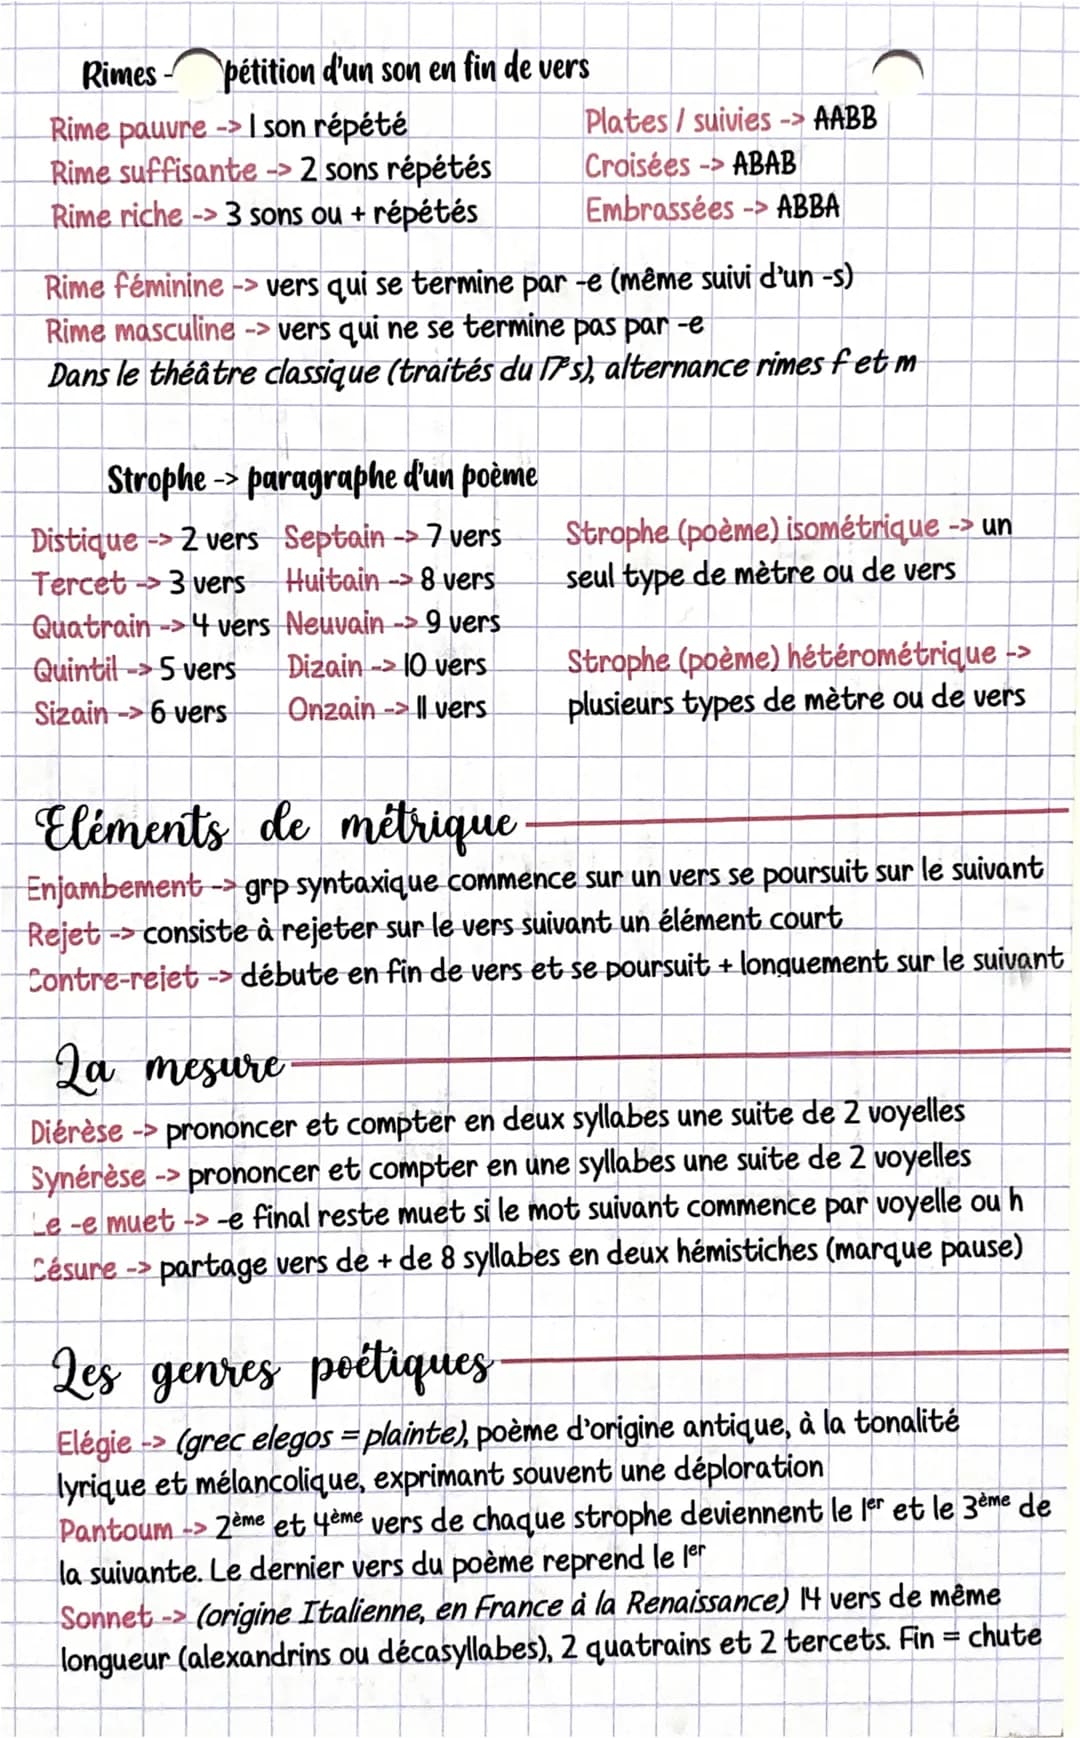 Rimes - pétition d'un son en fin de vers
Rime pauvre -> 1 son répété
Rime suffisante -> 2 sons répétés
Rime riche -> 3 sons ou + répétés
Plates / suivies -> AABB
Croisées -> ABAB
Embrassées -> ABBA
Rime féminine -> vers qui se termine par -e (même suivi d'un -s)
Rime masculine -> vers qui ne se termine pas par -e
Dans le théâtre classique (traités du 17es), alternance rimes f et m
Strophe -> paragraphe d'un poème
Distique -> 2 vers
Tercet -> 3 vers
Quatrain -> 4 vers
Quintil -> 5 vers
Sizain -> 6 vers
Septain -> 7 vers
Huitain -> 8 vers
Neuvain -> 9 vers
Dizain -> 10 vers
Onzain -> 11 vers
Strophe (poème) isométrique -> un
seul type de mètre ou de vers
Strophe (poème) hétérométrique ->
plusieurs types de mètre ou de vers
Eléments de métrique
Enjambement -> grp syntaxique commence sur un vers se poursuit sur le suivant
Rejet -> consiste à rejeter sur le vers suivant un élément court
Contre-rejet -> débute en fin de vers et se poursuit + longuement sur le suivant
La mesure
Diérèse -> prononcer et compter en deux syllabes une suite de 2 voyelles
Synérèse -> prononcer et compter en une syllabes une suite de 2 voyelles
Le -e muet -> -e final reste muet si le mot suivant commence par voyelle ou h
Césure -> partage vers de + de 8 syllabes en deux hémistiches (marque pause)
Les genres poétiques
Elégie -> (grec elegos = plainte), poème d'origine antique, à la tonalité
lyrique et mélancolique, exprimant souvent une déploration
Pantoum -> 2ème et 4ème vers de chaque strophe deviennent le 1er et le 3ème de
la suivante. Le dernier vers du poème reprend le 1er
Sonnet -> (origine Italienne, en France à la Renaissance) 14 vers de même
longueur (alexandrins ou décasyllabes), 2 quatrains et 2 tercets. Fin = chute